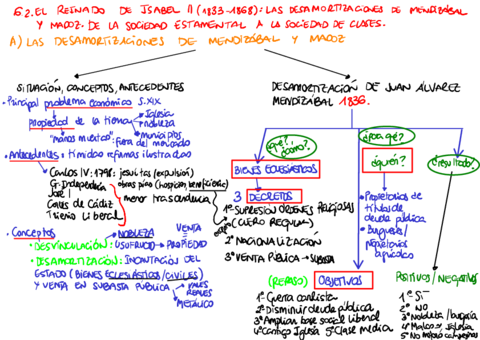 6.2. EL REINADO DE ISABEL II (1833-1868): LAS DESAMORTIZACIONES DE MENDIZÁBAL
Y MADOZ. DE LA SOCIEDAD ESTAMENTAL A LA SOCIEDAD DE CLASES.
A) LAS DESAMORTIZACIONES DE MENDIZÁBAL Y MADOZ
SITUACIÓN, CONCEPTOS, ANTECEDENTES
• Principal problema económico S. XIX
Propiedad de la tierra
Iglesia
nobleza
municipios
"manos muertas": fuera del mercado
• Antecedentes: tímidas reformas ilustradas
Carlos IV: 1798: jesuitas (expulsión)
obras pías (hospicios, beneficencia)
G. Independencia
José I
Cortes de Cádiz
Trienio Liberal
menor trascendencia
• Conceptos
NOBLEZA
VENTA
• DESVINCULACIÓN: USUFRUCTO PROPIEDAD
• DESAMORTIZACIÓN: INCAUTACIÓN DEL
ESTADO (BIENES ECLESIÁSTICOS/CIVILES)
Y VENTA EN SUBASTA PÚBLICA
VALES
REALES
METÁLICO
DESAMORTIZACIÓN DE JUAN ÁLVAREZ
MENDIZÁBAL 1836.
¿qué?
¿cómo?
BIENES ECLESIÁSTICOS
3 DECRETOS
1º SUPRESIÓN ÓRDENES RELIGIOSAS
(CLERO REGULAR)
2º NACIONALIZACIÓN
3º VENTA PÚBLICA SUBASTA
(REPASO) OBJETIVOS
1º Guerra carlista
2º Disminuir deuda pública
3º Ampliar base social liberal
4º Castigo Iglesia 5º Clase media
¿Para qué?
¿quién?
• Propietarios de
títulos de
deuda pública
• Burguesía/
propietarios
agrícolas
¿resultado?
POSITIVOS/NEGATIVOS
1º SÍ
2º NO
3º Nobleza/burguesía
4º Malas Iglesia
5º No mejora campesinos